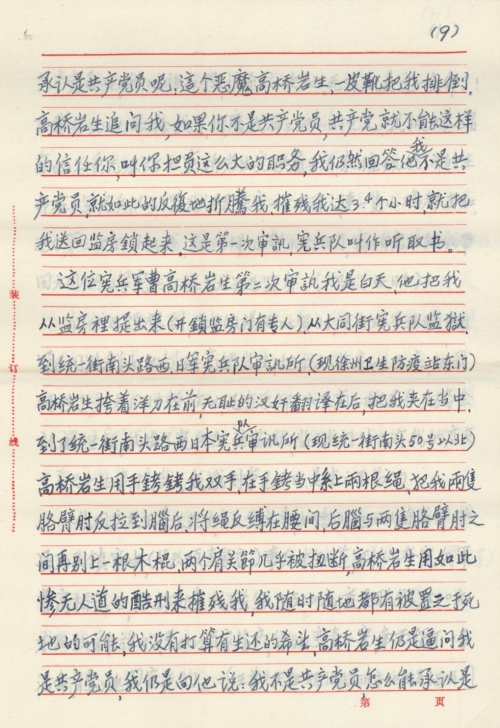 (9)
承认是共产党员呢,這个恶魔高桥岩生,一皮靴把我排倒,
高桥岩生追问我,如果你不是共产党员,共产党就不能这样
的信任你,叫你担员这么大的职务,我仍然回答他我不是共
产党员,就如此的反復地折騰我,摧残我达3.4个小时,就把
我送回监房鎖起来,这是第一次审訊,宪兵队叫作听取书。
这位宪兵军曹高桥岩生第二次审訊我是白天,他把我
从监房裡提出来(开鎖监房门有专人),从大同街宪兵队监獄
到统一街南头路西日军宪兵队审訊所(现徐州卫生防疫站东门)
高桥岩生挎着洋刀在前,无耻的汉奸翻译在后,把我夹在当中,
到了统一街南头路西日本宪兵队审讯所(现统一街南头50号以北)
高桥岩生用手銬銬我双手,在手銬当中系上兩根绳,把我兩隻
胳臂肘反拉到腦后,将绳反缚在腰间,后腦与兩隻胳臂肘之
间再别上一根木棍,两个肩关節几乎被扭断,高桥岩生用如此
惨无人道的酷刑来摧残我,我随时随地都有被置之于死
地的可能,我没有打算有生还的希望,高桥岩生仍是逼问我
是共产党员,我仍是向他说:我不是共产党员怎么能承认是
装
订
线
第 页